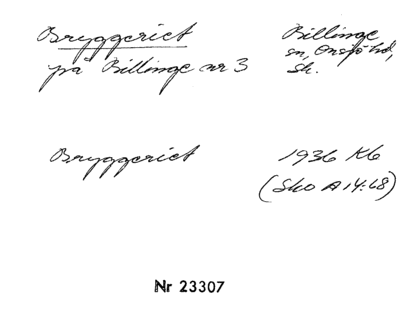 Bryggeriet
på Billinge nr 3
Billinge
sn, Onsjö hd,
Sk.
Bryggeriet
1936 K6
(Sko A 14:68)
Nr 23307